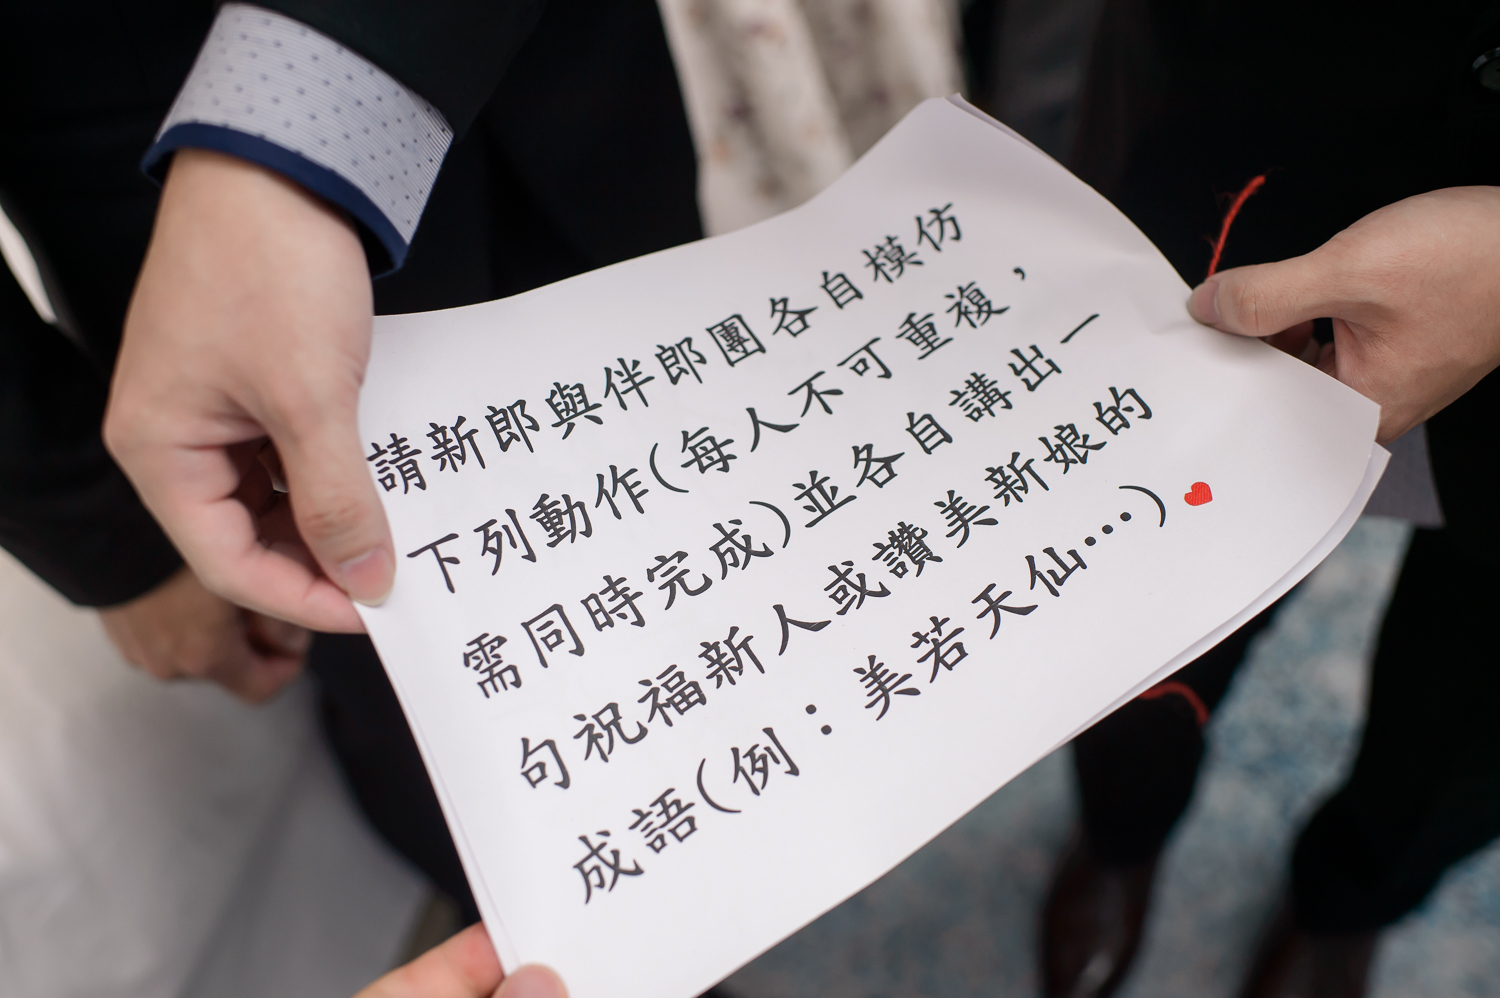 請新郎與伴郎團各自模仿
下列動作(每人不可重複，
需同時完成)並各自講出一
句祝福新人或讚美新娘的
成語(例：美若天仙…)。